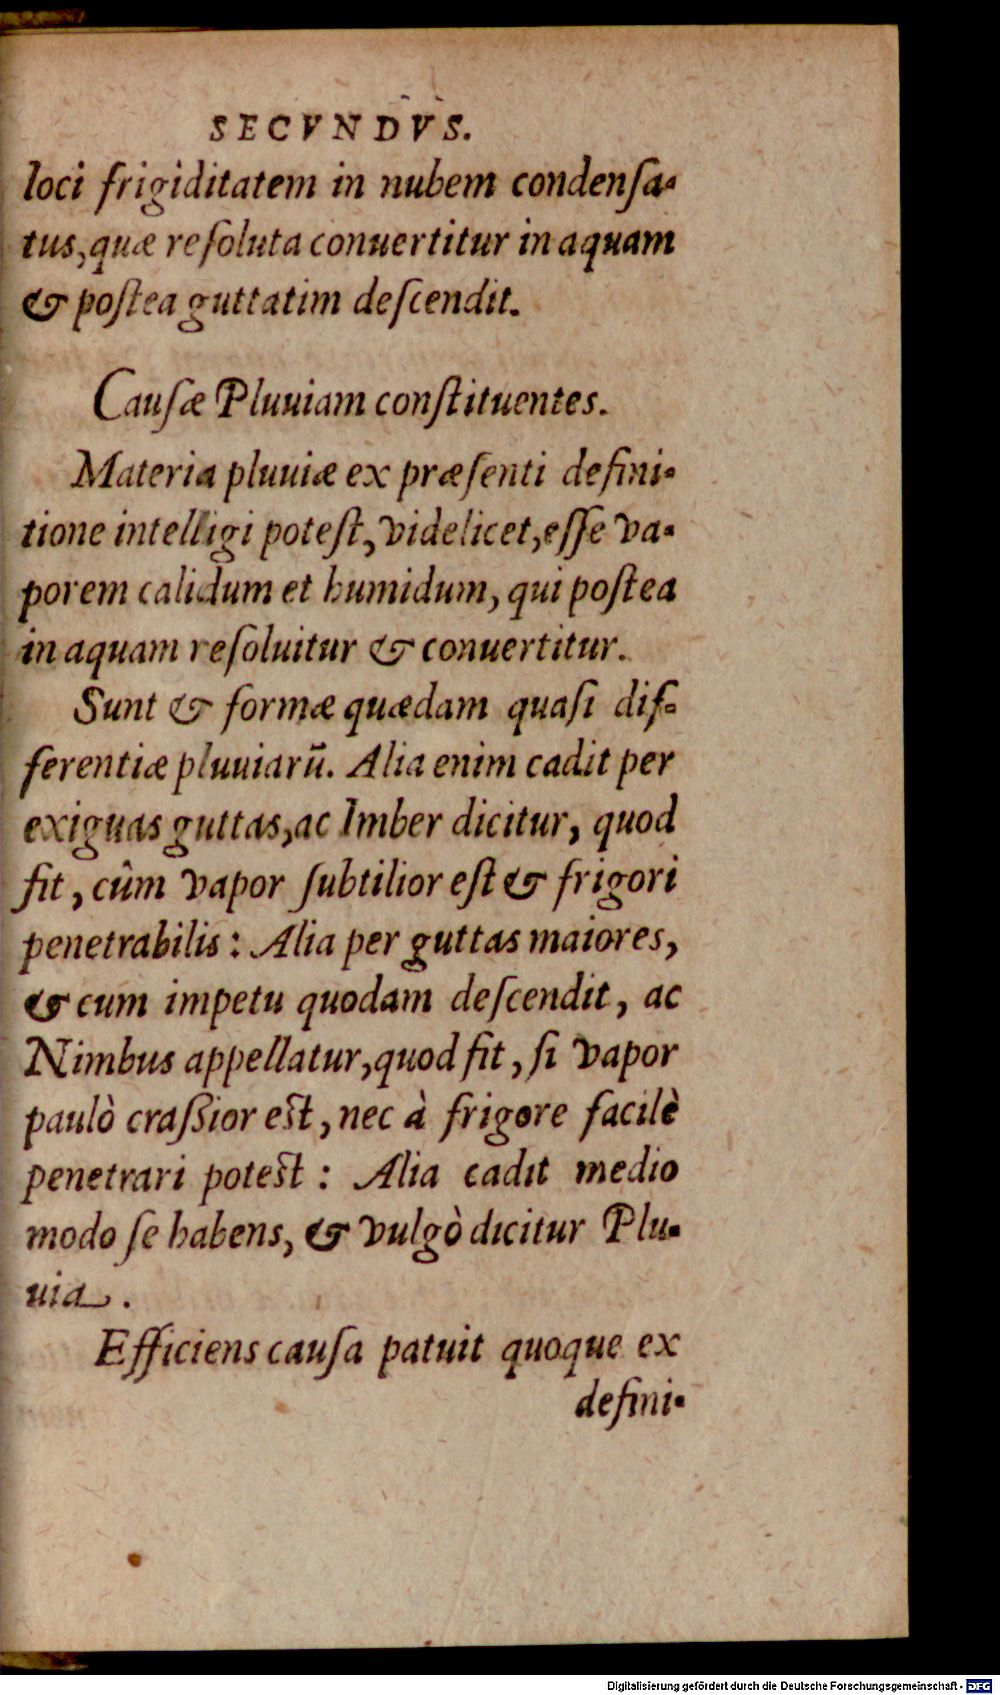 SECVNDVS.
loci frigiditatem in nubem condenſa-
tus, quæ reſoluta conuertitur in aquam
& poſtea guttatim deſcendit.
Cauſæ Pluuiam conſtituentes.
Materia pluuiæ ex præſenti defini-
tione intelligi poteſt, videlicet, eſſe va-
porem calidum et humidum, qui poſtea
in aquam reſoluitur & conuertitur.
Sunt & formæ quædam quaſi dif-
ferentiæ pluuiarū. Alia enim cadit per
exiguas guttas, ac Imber dicitur, quod
fit, cûm vapor ſubtilior eſt & frigori
penetrabilis: Alia per guttas maiores,
& cum impetu quodam deſcendit, ac
Nimbus appellatur, quod fit, ſi vapor
paulò craßior eſt, nec à frigore facilè
penetrari poteſt: Alia cadit medio
modo ſe habens, & vulgò dicitur Plu-
uia.
Efficiens cauſa patuit quoque ex
defini-
Digitalisierung gefördert durch die Deutsche Forschungsgemeinschaft - DFG